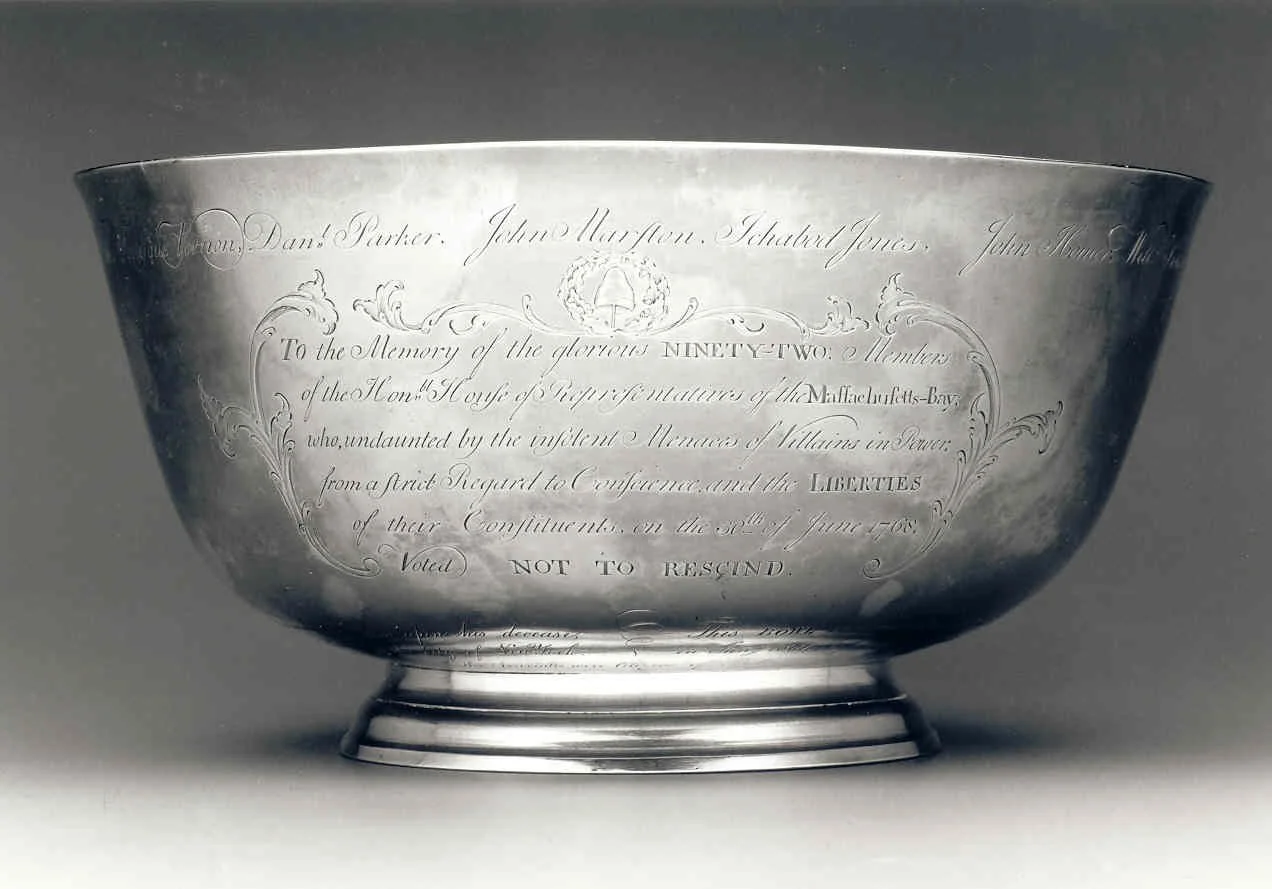 Vernon, Danl. Parker. John Marſton. Ichabod Jones. John Homer. Wm
To the Memory of the glorious NINETY-TWO: Members
of the Honbl. Houſe of Repreſentatives of the Maſſachuſetts-Bay,
who, undaunted by the inſolent Menaces of Villains in Power,
from a ſtrict Regard to Conſcience, and the LIBERTIES
of their Conſtituents, on the 30th of June 1768,
Voted NOT TO RESCIND.
has deceaſe, This BOWL
of New York.